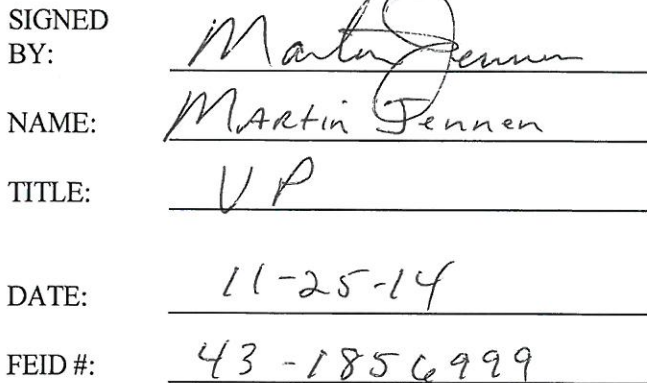 SIGNED
BY: Martin Jennen
NAME: MARtin Jennen
TITLE: VP
DATE: 11-25-14
FEID #: 43-1856999